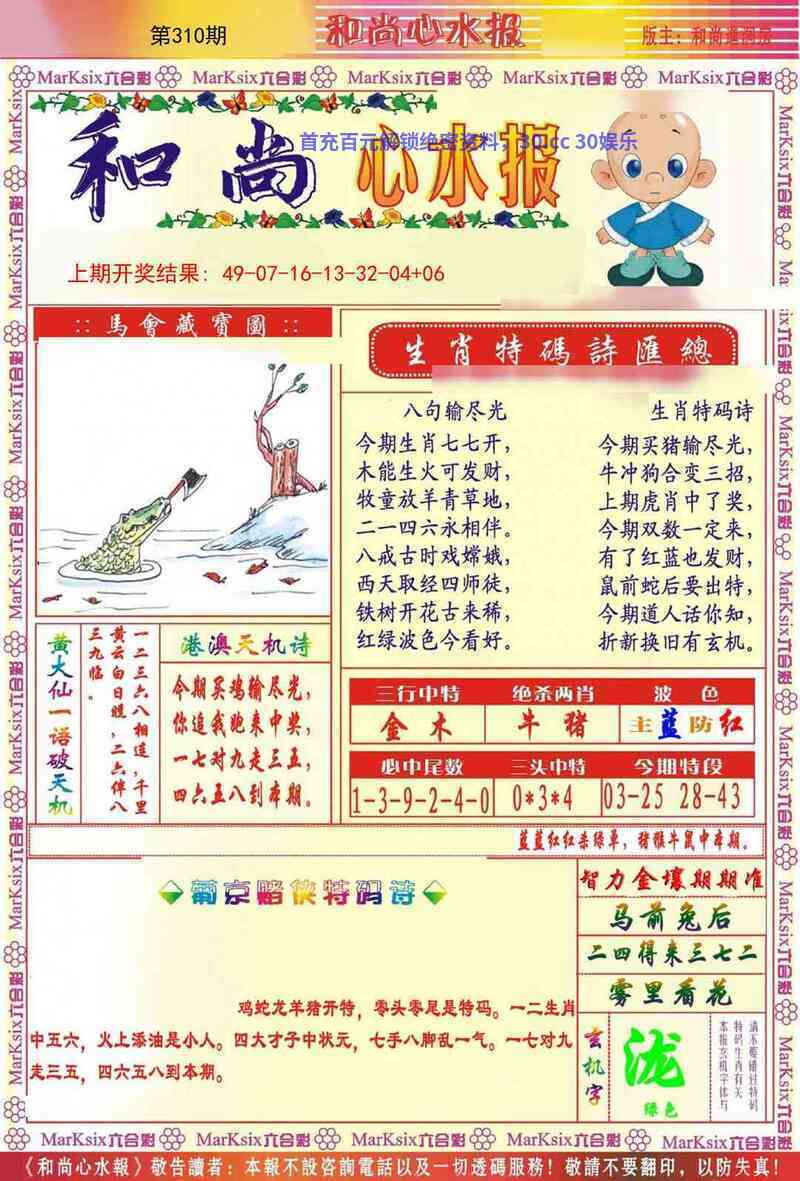 第310期
和尚心水报
版主：和尚
MarKsix六合彩 MarKsix六合彩 MarKsix六合彩 MarKsix六合彩 MarKsix六合彩
和尚心水报
首充百元解锁绝密资料，30.cc 30娱乐
上期开奖结果：49-07-16-13-32-04+06
::馬會藏寶圖::
生肖特碼詩匯總
八句输尽光
今期生肖七七开，
木能生火可发财，
牧童放羊青草地，
二一四六永相伴。
八戒古时戏嫦娥，
西天取经四师徒，
铁树开花古来稀，
红绿波色今看好。
生肖特码诗
今期买猪输尽光，
牛冲狗合变三招，
上期虎肖中了奖，
今期双数一定来，
有了红蓝也发财，
鼠前蛇后要出特，
今期道人话你知，
折新换旧有玄机。
黄大仙一语破天机
一二三六八相连，千里
黄云白日曛，二六伴八
三九临。
港澳天机诗
今期买鸡输尽光，
你追我跑来中奖，
一七对九走三五，
四六五八到本期。
三行中特 绝杀两肖 波色
金木 牛猪 主蓝防红
必中尾数 三头中特 今期特段
1-3-9-2-4-0 0*3*4 03-25 28-43
蓝蓝红红杀绿单，猪猴牛鼠中本期。
葡京赌侠特码诗
鸡蛇龙羊猪开特，零头零尾是特码。一二生肖
中五六，火上添油是小人。四大才子中状元，七手八脚乱一气。一七对九
走三五，四六五八到本期。
智力金壤期期准
马前兔后
二四得来三七二
雾里看花
玄机字
泷
绿色
请不要错过特码
特码生肖有关
本报玄机字体与
MarKsix六合彩 MarKsix六合彩 MarKsix六合彩 MarKsix六合彩 MarKsix六合彩
《和尚心水報》敬告讀者：本報不設咨詢電話以及一切透碼服務！敬請不要翻印，以防失真！